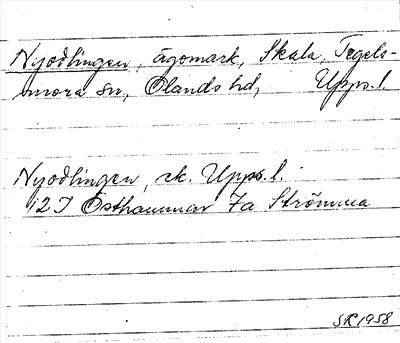 Nyodlingen, ägomark, Skala, Tegels-
mora sn, Olands hd, Upps. l.
Nyodlingen, rk. Upps. l.
12I Östhammar 7a Strömma
SR 1958